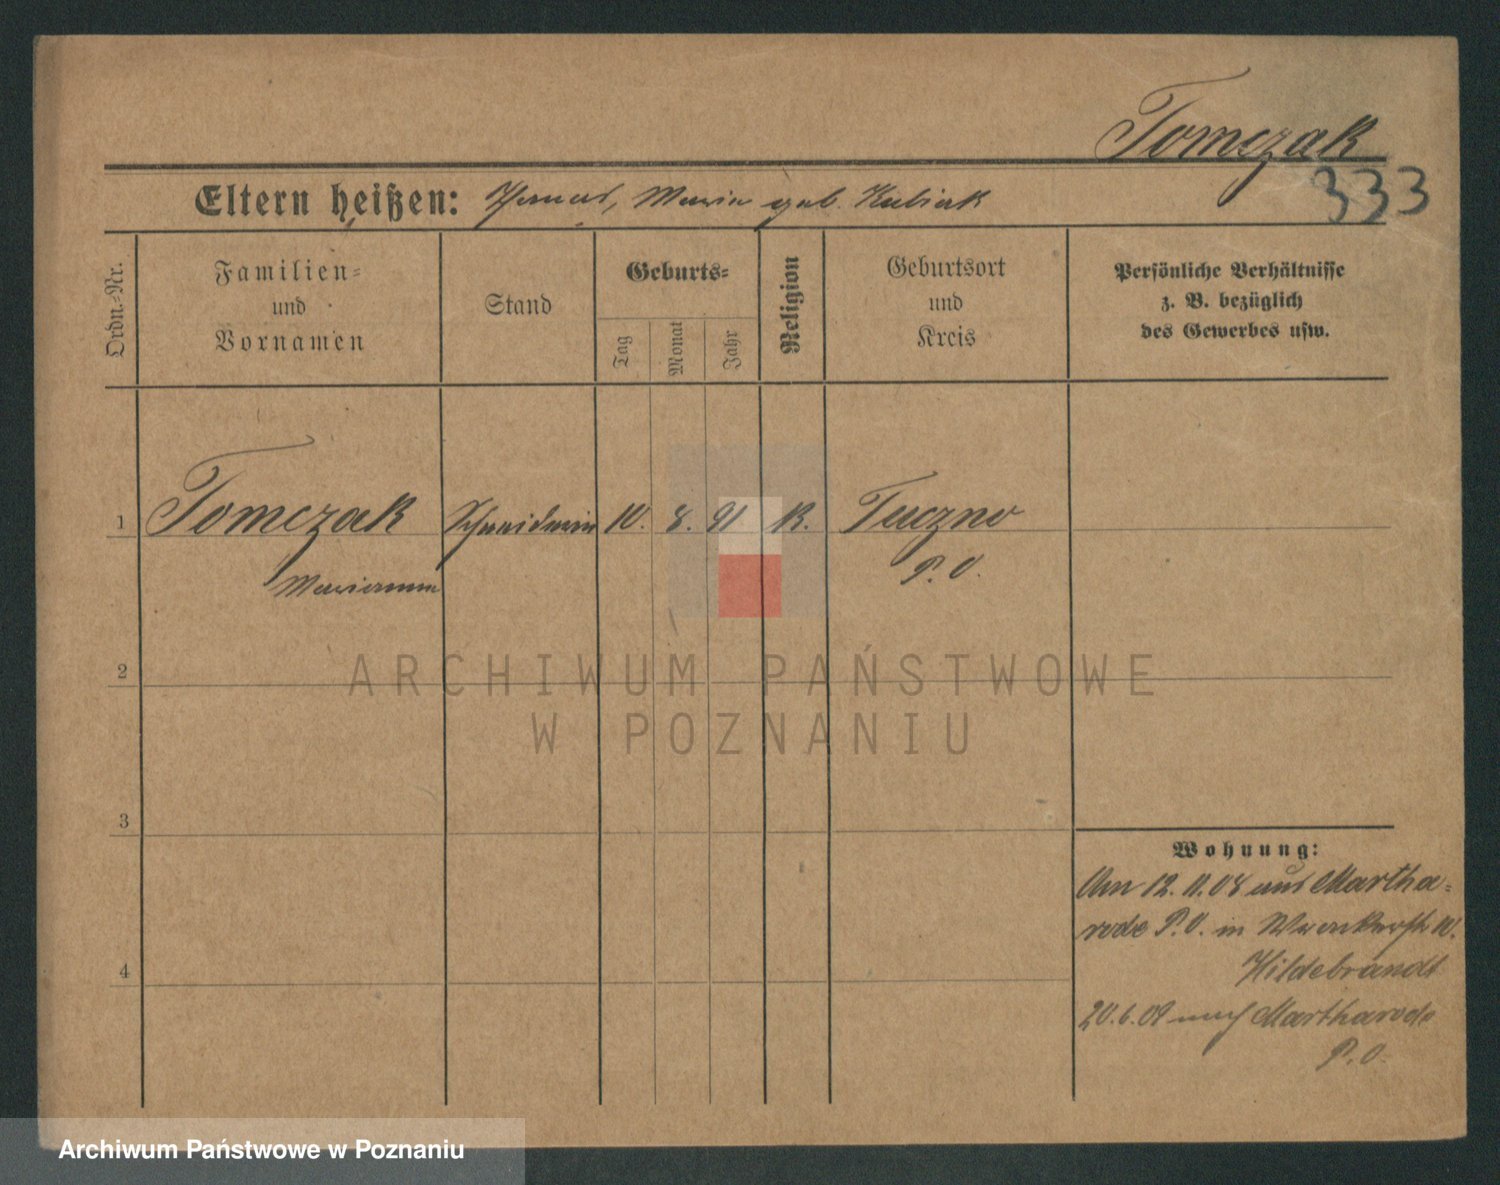 Tomczak
333
Eltern heißen: Ignatz, Maria geb. Kubiak
Ordn.-Nr.
Familien-
und
Vornamen
Stand
Geburts-
Tag
Monat
Jahr
Religion
Geburtsort
und
Kreis
Persönliche Verhältnisse
z. B. bezüglich
des Gewerbes usw.
1 Tomczak Schneiderin 10. 8. 91 K. Tuczno
Marianna P. O.
2
ARCHIWUM PAŃSTWOWE
W POZNANIU
3
Wohnung:
Am 12.11.08 aus Martha-
rode P.O. in 10.
4
Hildebrandt
20.6.09 nach Martharode
P.O.
Archiwum Państwowe w Poznaniu